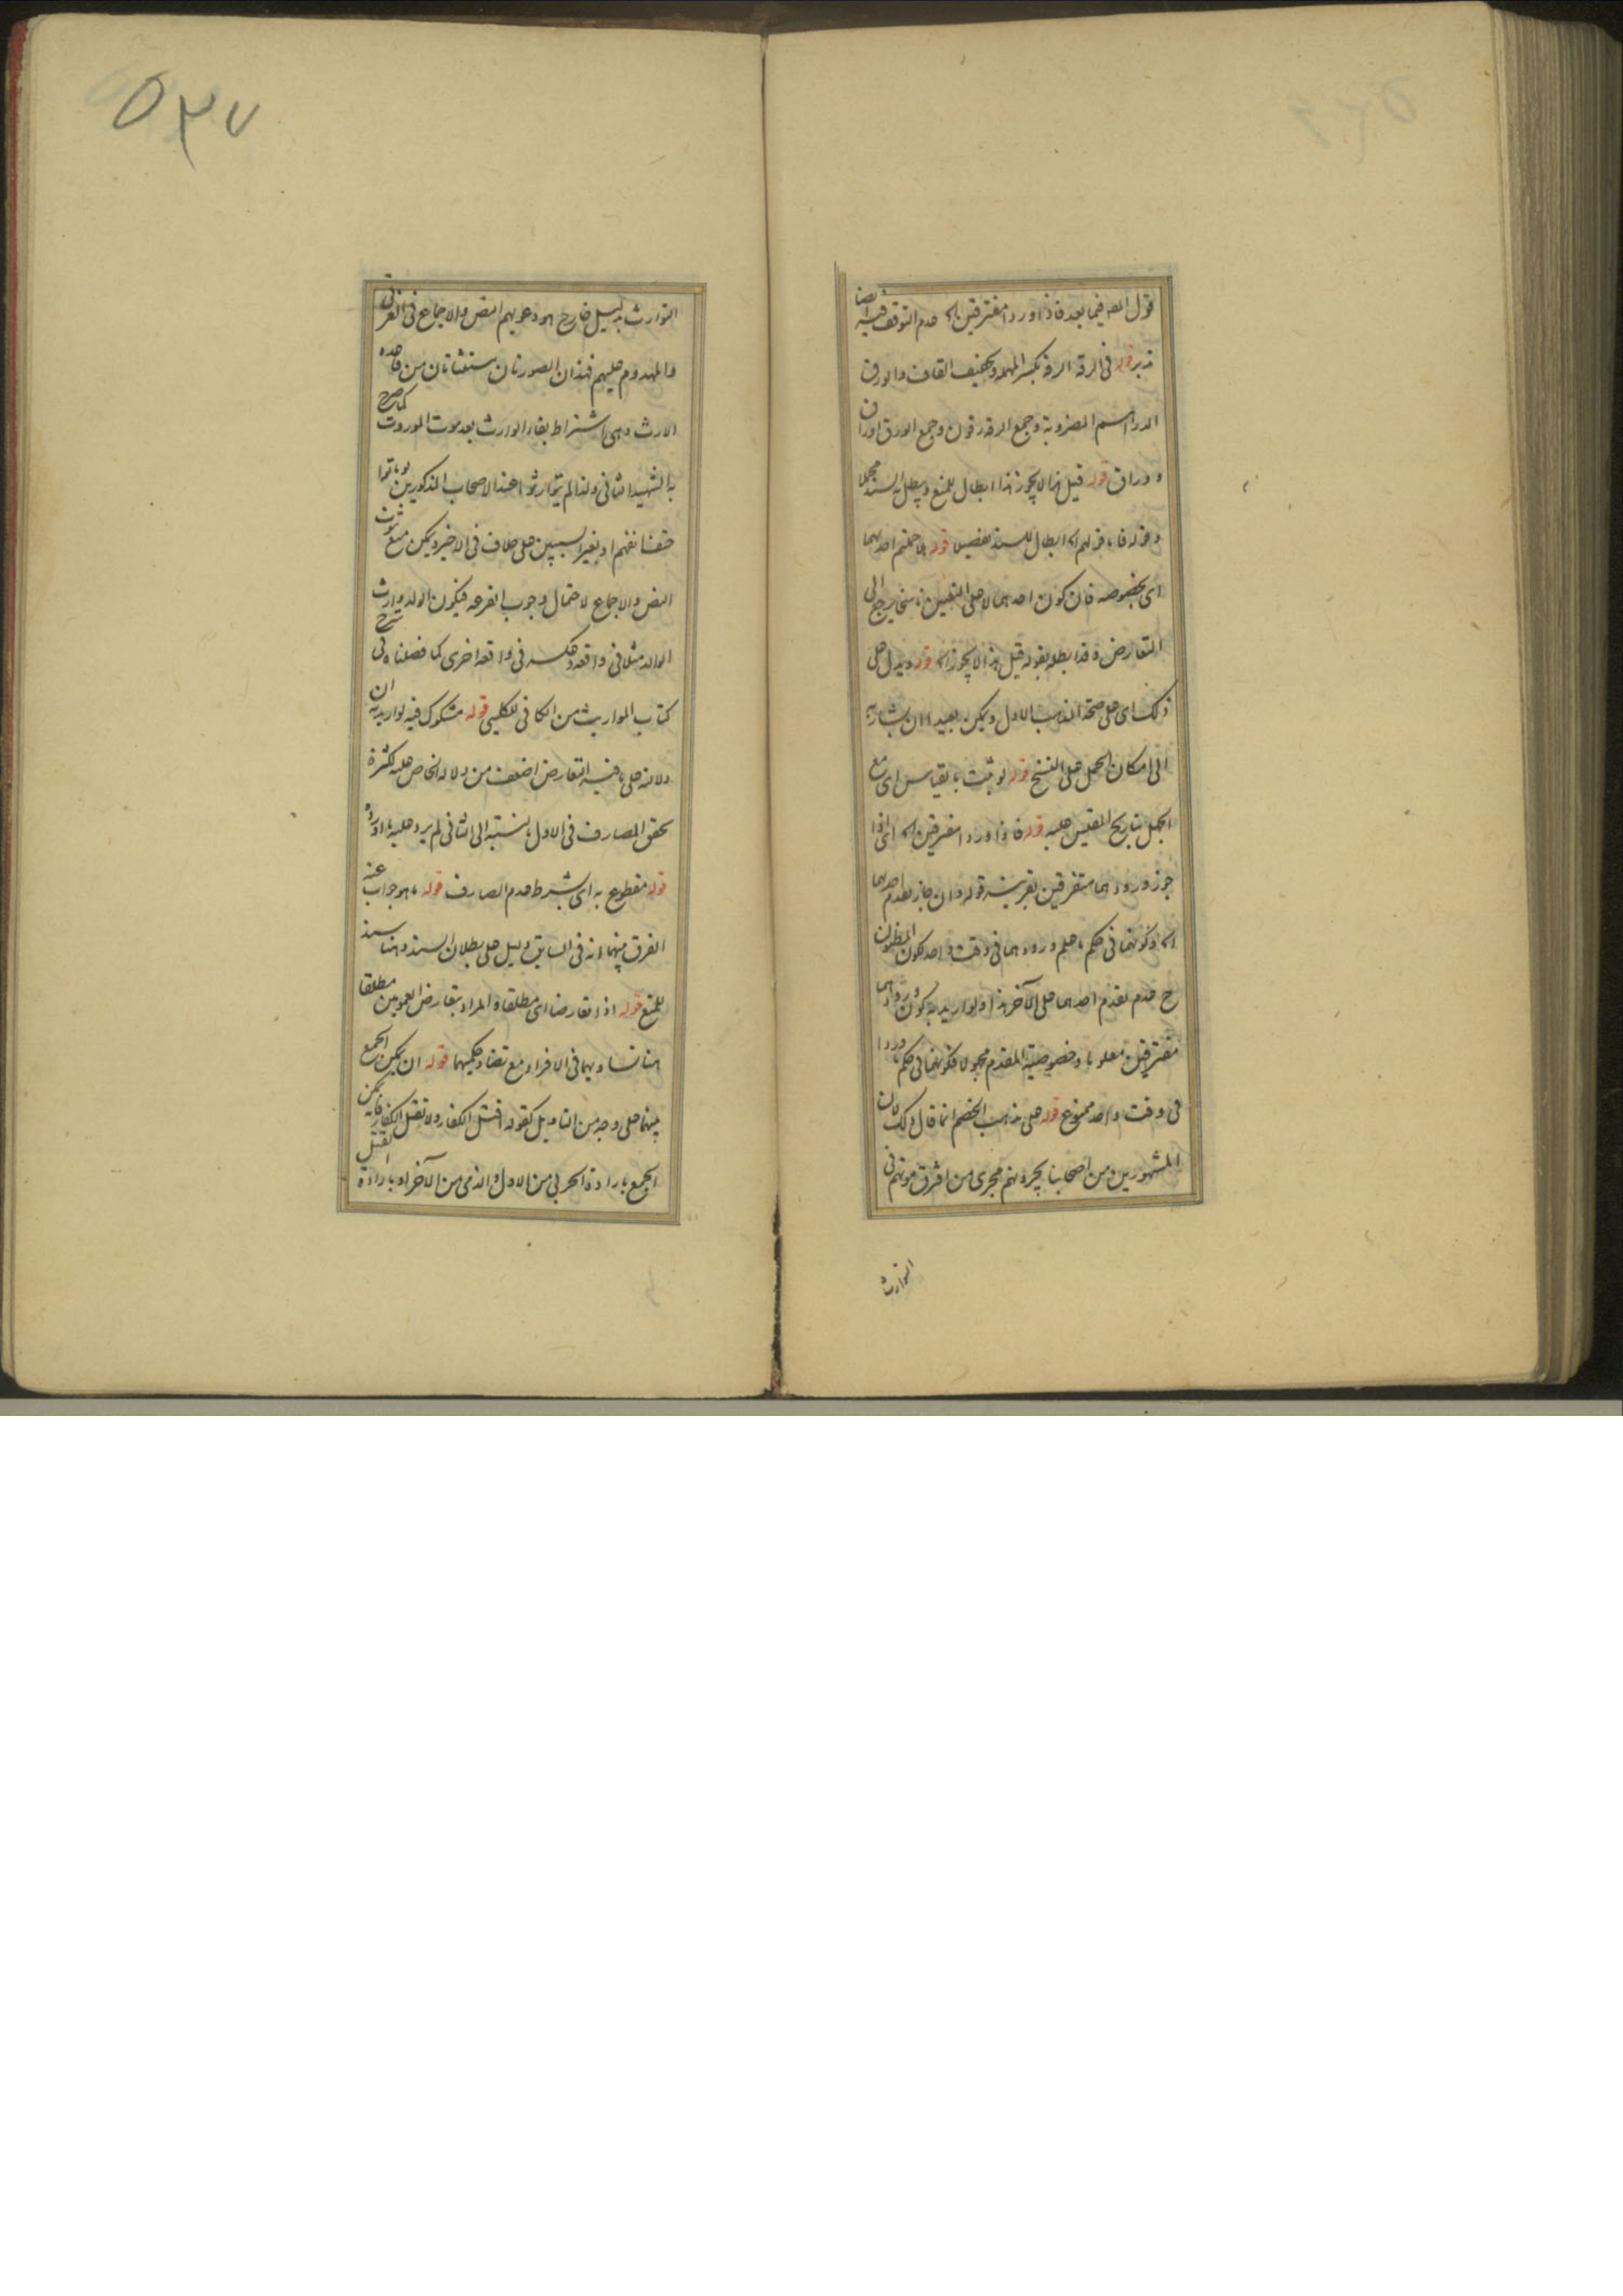 قول المصه فيما بعد فاذا وردا مفترقين اه عدم التوقف فيه ايضا
تدبر قوله فى الرقة الرقة بكسر المهملة وتخفيف القاف والورق
الدراهم المضروبة وجمع الرقة رقون وجمع الورق اوراق
ووراق قوله قيل هذا لا يجوز هذا ابطال للمنع ويبطل به السند مجملا
وقوله فان قولهم اه ابطال للسند تفصيلا قوله احدهما
اى بخصوصه فان كون احدهما لا على التعيين ناسخا يرجع الى
التعارض وقد ابطله بقوله قيل هذا لا يجوز اه قوله ويدل على
ذلك اى على صحة المذهب الاول ويمكن بعيدا ان يشار به
الى امكان الحمل على النسخ قوله لو ثبت بالقياس اى مع
الجهل بتاريخ المقيس عليه قوله فاذا وردا مفترقين اه اى اذا
جوز ورودهما مفترقين بقرينة قوله وان جاز تقدم احدهما
اه وكونهما فى حكم ما علم ورودهما فى وقت واحد لكون المظنون
ح عدم تقدم احدهما على الآخر هذا ولو اريد به كون ورودهما
مفترقين معلوما وخصوصية المقدم مجهولا فكونهما فى حكم ما وردا
فى وقت واحد ممنوع قوله على مذهب الخصم انما قال ذلك لان
المشهور بين من اصحابنا يجرونهم مجرى من افترق موتهم فى
التوارث
٥٣٧
التوارث بدليل خارج هو دعويهم النص والاجماع فى الغرقى
والمهدوم عليهم فهذان الصورتان مستثناتان من قاعدة
الارث وهى اشتراط بقاء الوارث بعد موت الموروث كما صرح
به الشهيد الثانى ولذا لم يتوارثوا عند الاصحاب المذكورين لو ماتوا
حتف انفهم او بغير السببين على خلاف فى الاخير ويمكن منع ثبوت
النص والاجماع لاحتمال وجوب القرعة فيكون الولد وارث
الوالد مثلا فى واقعة وعكسه فى واقعة اخرى كما فصلناه فى شرح
كتاب المواريث من الكافى للكلينى قوله مشكوك فيه لو اريد به ان
دلالته على ما فيه التعارض اضعف من دلالة الخاص عليه لكثرة
تحقق الصارف فى الاول بالنسبة الى الثانى لم يرد عليه ما اورده
قوله مقطوع به اى بشرط عدم الصارف قوله ما هو جواب عنه
الفرق بينهما انه فى السابق دليل على بطلان السند وهنا سند
للمنع قوله اذا تعارضا اى مطلقا والمراد بتعارض العمومين مطلقا
هنا تساويهما فى الافراد مع تضاد حكميهما قوله ان يمكن الجمع
بينهما على وجه من التاويل كقوله اقتل الكفار ولا تقتل الكفار فانه يمكن
الجمع بارادة الحربى من الاول والذمى من الآخر او بارادة القتل